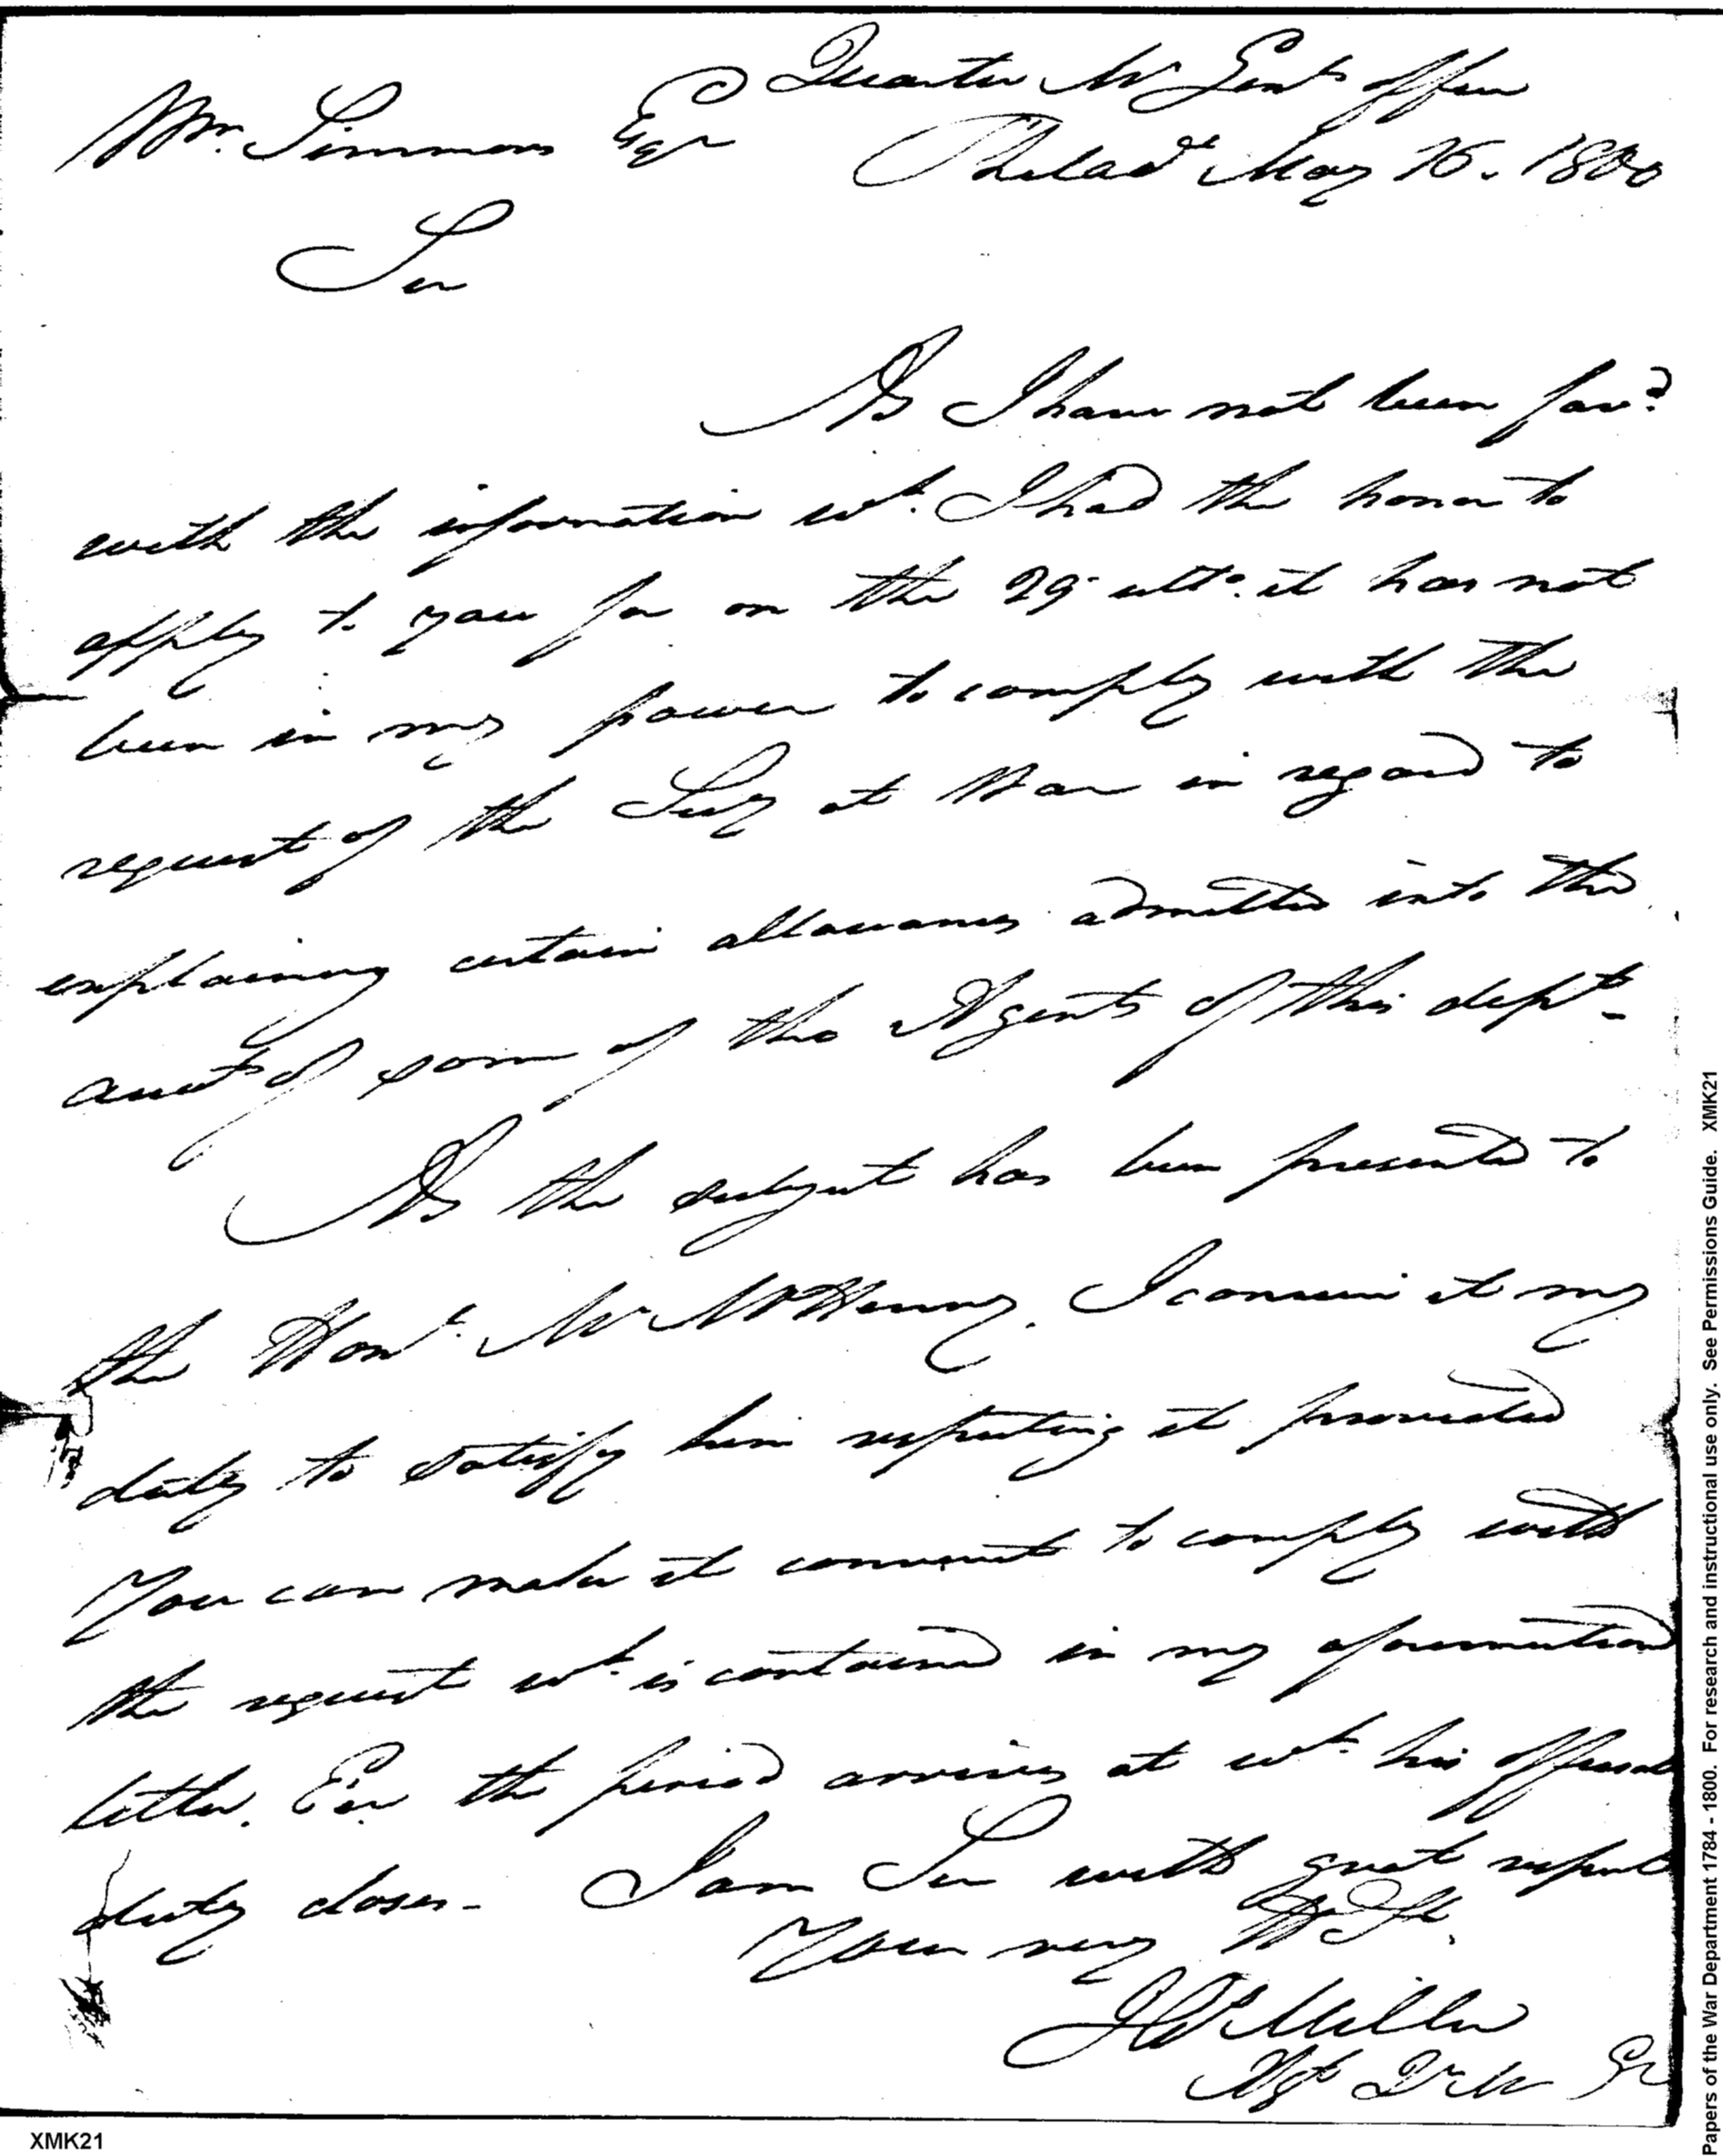 Quarter Mr Genls office
Wm. Simmons Esqr Philada May 16. 1800
Sir
As I have not been favd.
with the information wh. I had the honor to
apply to you for on the 29 ulto. it has not
been in my power to comply with the
request of the Secy at War in regard to
explaining certain allowances admitted into the
accts of some of the Agents of this dept.
As the subject has been presented to
the Honl. Mr McHenry. I conceive it my
duty to satisfy him respecting it provided
You can make it convenient to comply with
the request wh. is contained in my aforementioned
letter. Ere the period arrives at wh. his official
duty closes- I am Sir with great respect
Your very H St.
Jno Miller
As Qr Mr Gl
Papers of the War Department 1784 - 1800. For research and instructional use only. See Permissions Guide. XMK21
XMK21